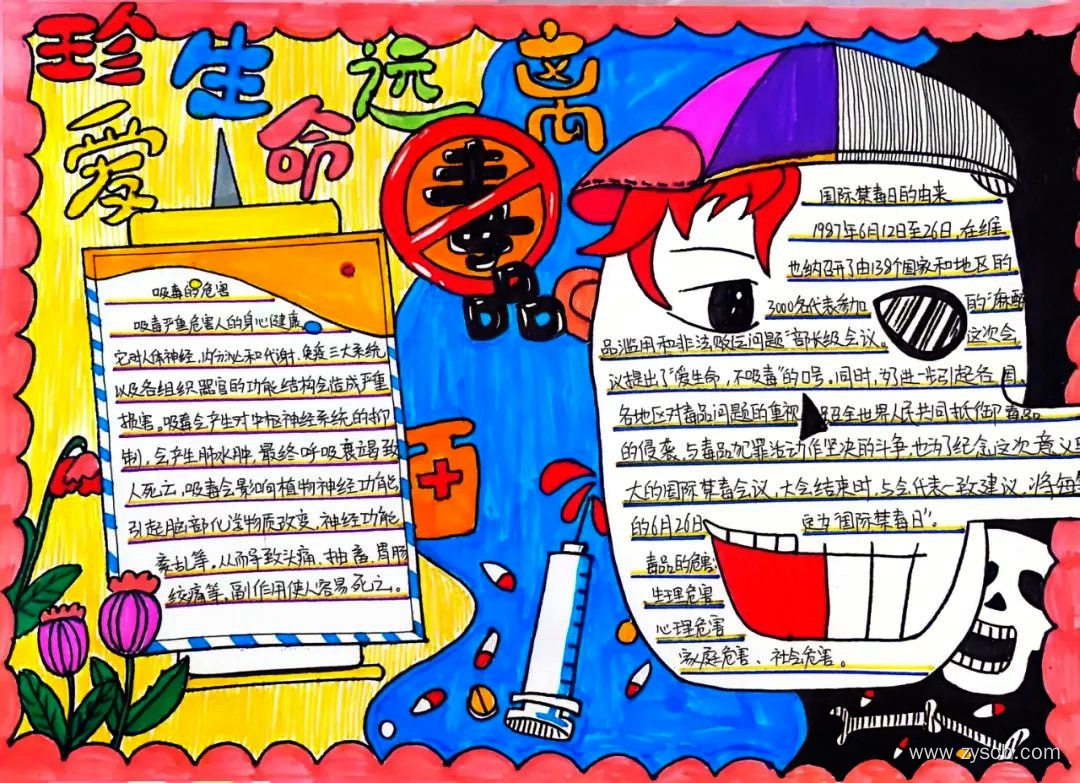 珍爱生命远离
毒品
吸毒的危害
吸毒严重危害人的身心健康。
它对人体神经、内分泌和代谢、免疫三大系统
以及各组织器官的功能结构会造成严重
损害。吸毒会产生对中枢神经系统的抑
制，会产生肺水肿，最终呼吸衰竭致
人死亡，吸毒会影响植物神经功能
引起脑部化学物质改变，神经功能
紊乱等，从而导致头痛、抽畜、胃肠
绞痛等，副作用使人容易死亡。
国际禁毒日的由来
1987年6月12日至26日，在维
也纳召开了由138个国家和地区的
3000名代表参加 的"麻醉
品滥用和非法贩运问题"部长级会议。 这次会
议提出了"爱生命，不吸毒"的口号。同时，为了进一步引起各国、
各地区对毒品问题的重视 号召全世界人民共同抵御毒品
的侵袭，与毒品犯罪活动作坚决的斗争，也为了纪念这次意义
大的国际禁毒会议，大会结束时，与会代表一致建议，将每
的6月26日 定为"国际禁毒日"。
毒品的危害：
生理危害
心理危害
家庭危害、社会危害。
www.zysdb.com